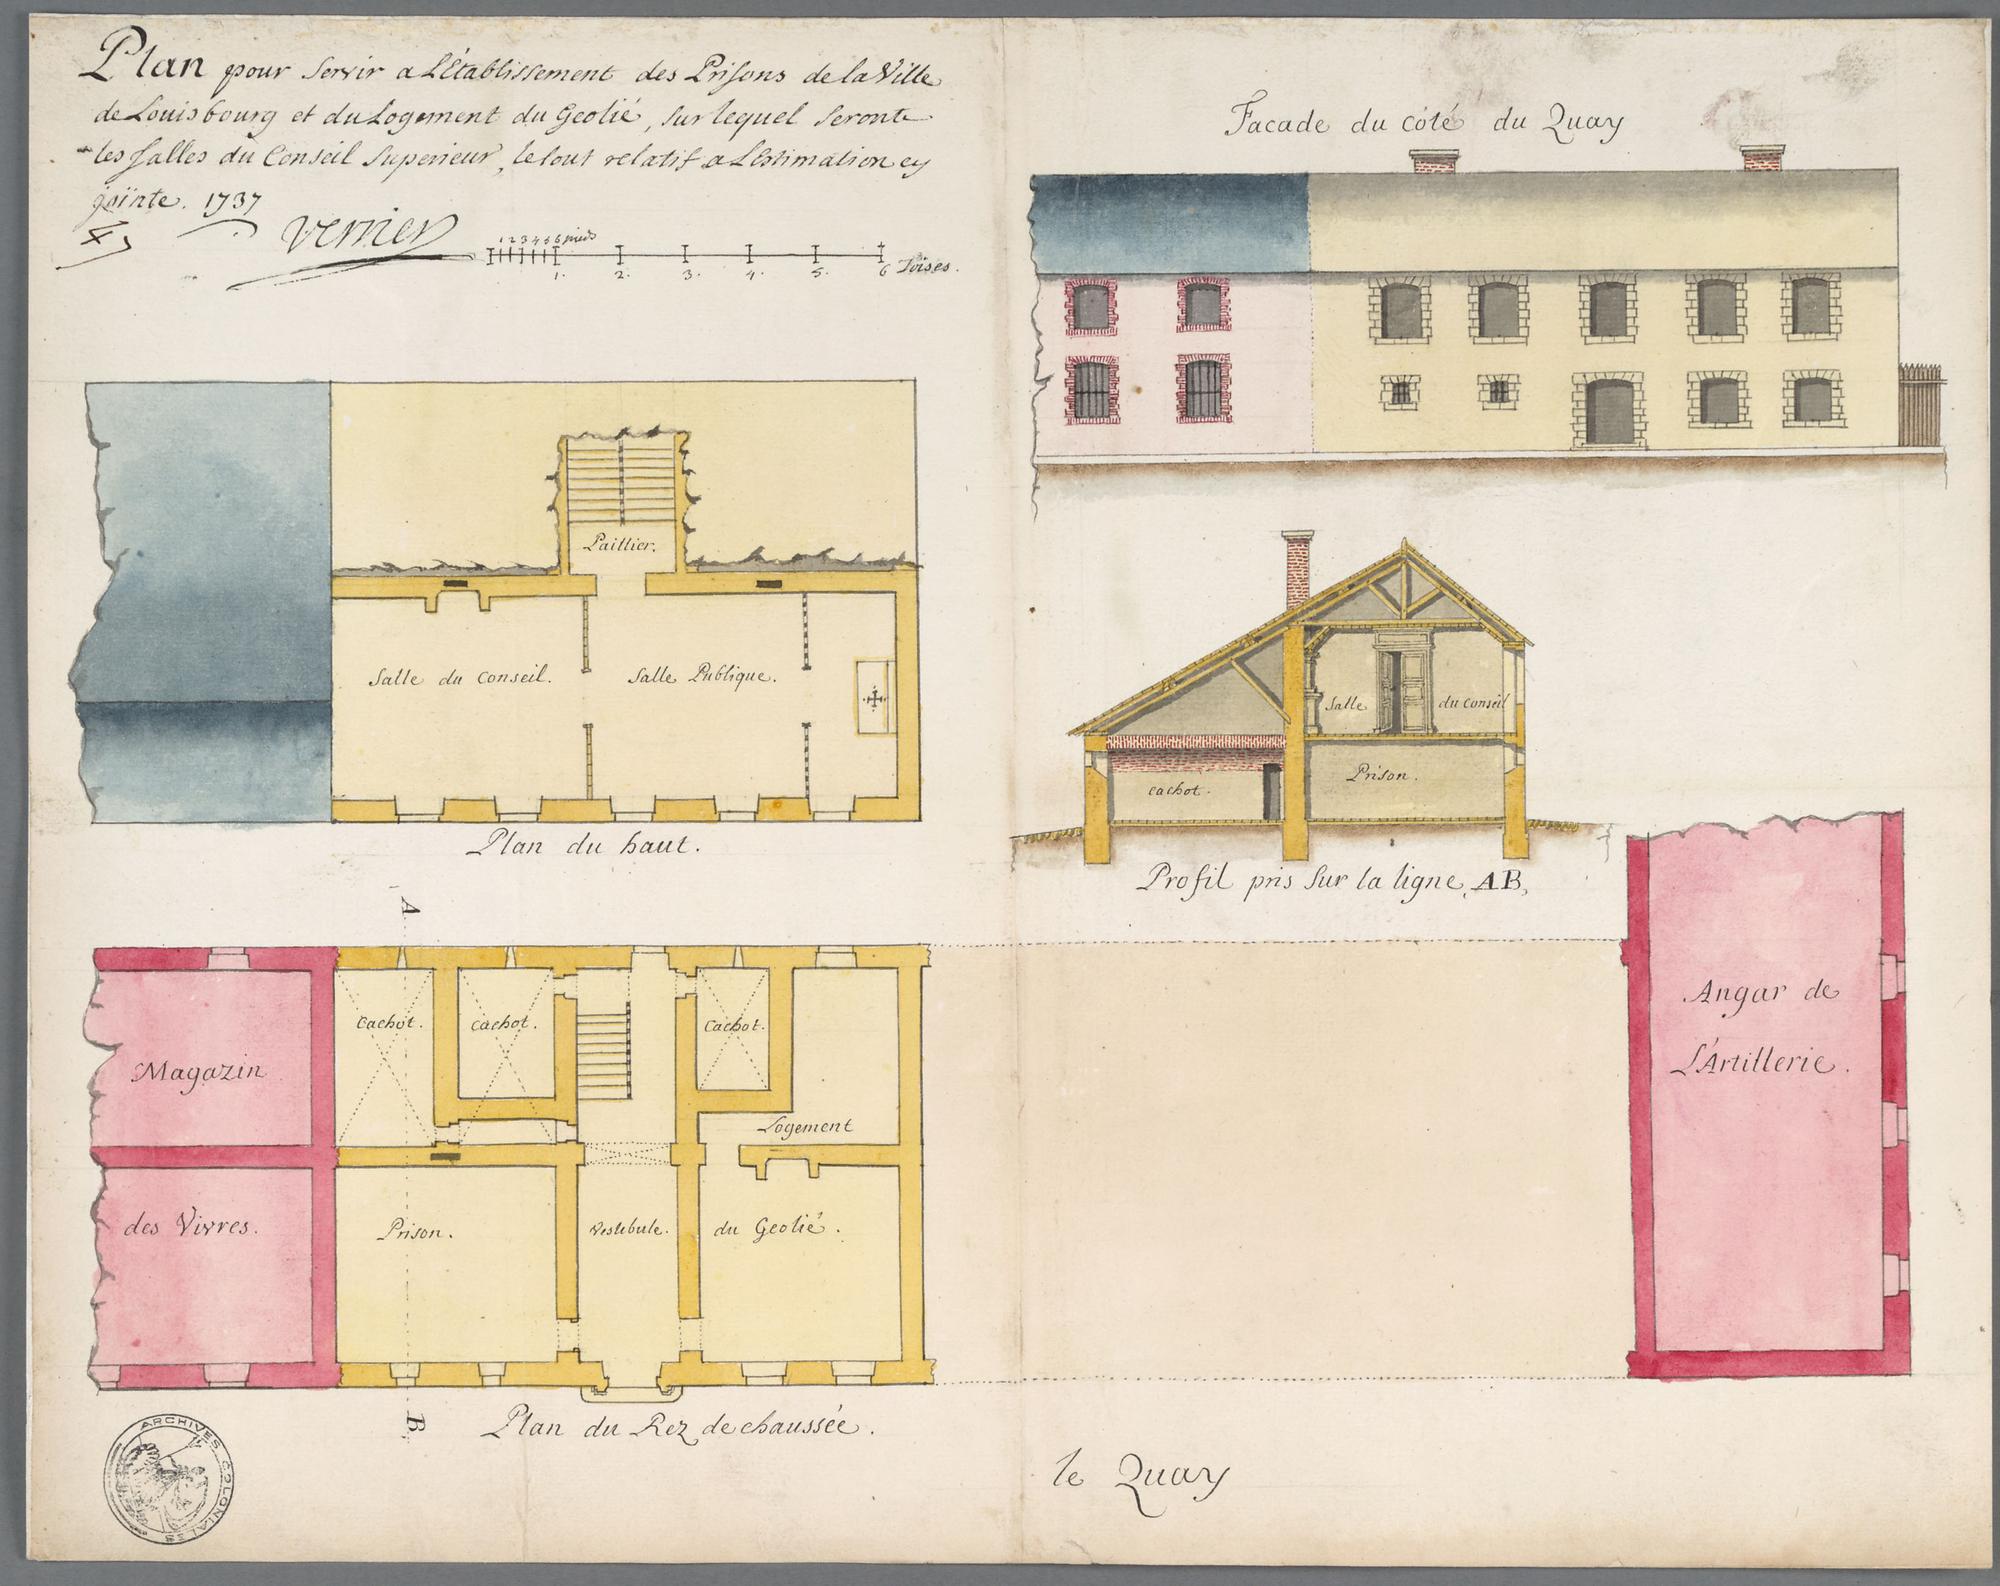 Plan pour servir a L'Établissement des Prisons de la Ville
de Louisbourg et du Logement du Geolié, sur lequel seront
les salles du Conseil superieur, le tout relatif a L'Estimation cy
jointe. 1737
verrier
1 2 3 4 5 6 pieds
1. 2. 3. 4. 5. 6 Toises.
Facade du côté du Quay
Paillier.
Salle du Conseil.
Salle Publique.
Plan du haut.
Salle du Conseil
Cachot.
Prison.
Profil pris sur la ligne, AB,
A
Cachot.
Cachot.
Cachot.
Magazin
des Vivres.
Logement
du Geolié.
Prison.
Vestibule.
B
Plan du Rez de chaussée.
Angar de
L'Artillerie.
le Quay
ARCHIVES COLONIALES